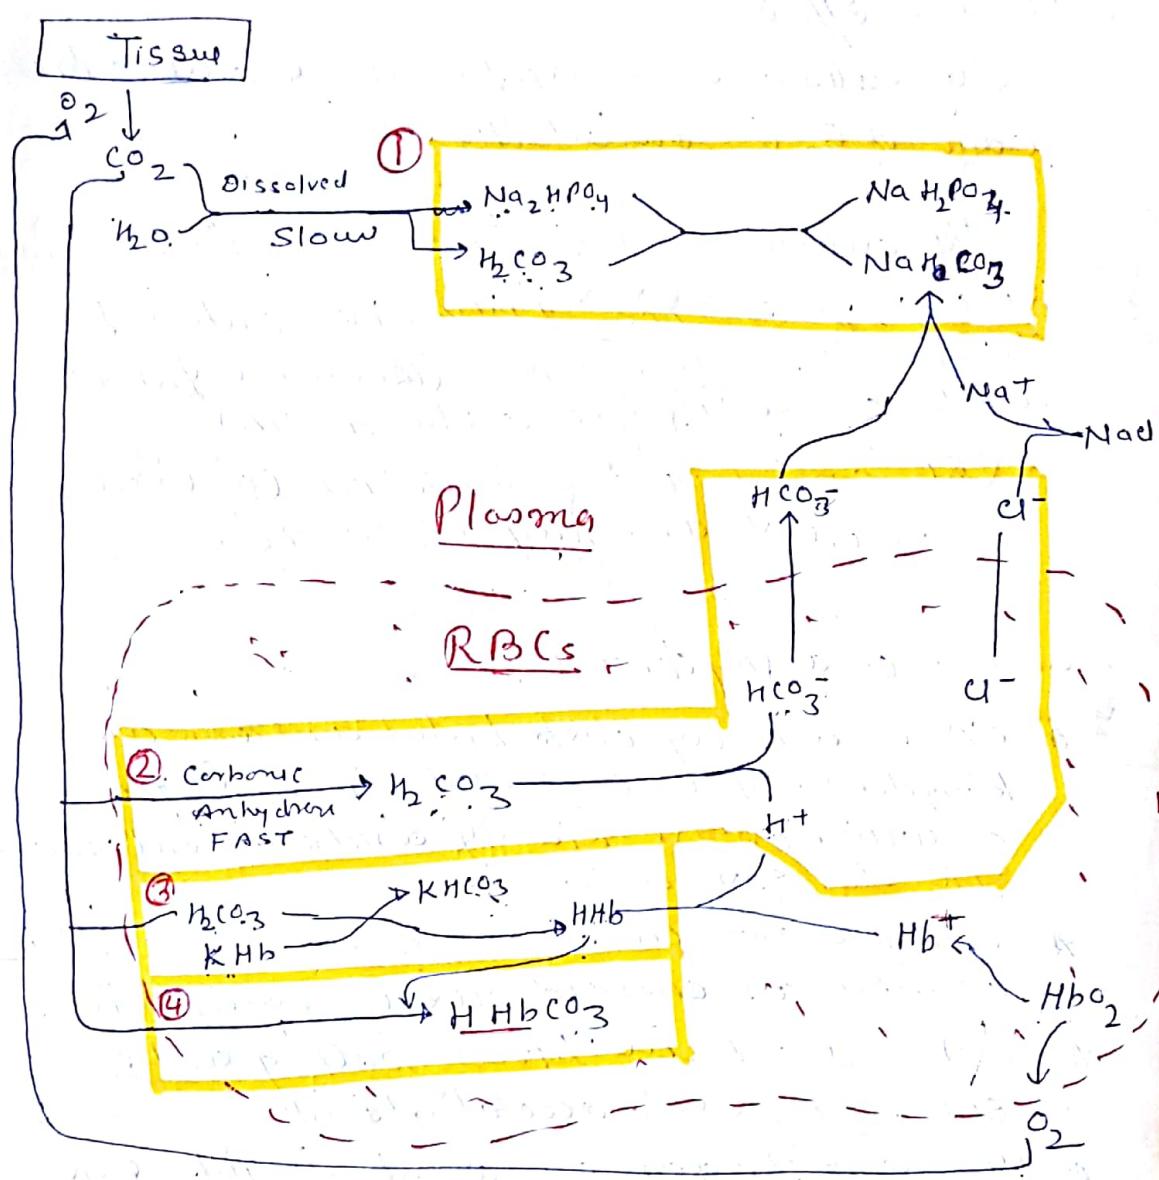 Tissue
O2
CO2
H2O
Dissolved
Slow
①
Na2HPO4
H2CO3
NaH2PO4
Na+
NaCl
HCO3-
Cl-
Plasma
RBCs
HCO3-
Cl-
②. Carbonic
FAST
H2CO3
H+
③
H2CO3
KHb
KHCO3
HHb
Hb+
HbO2
④
H HbCO3
O2